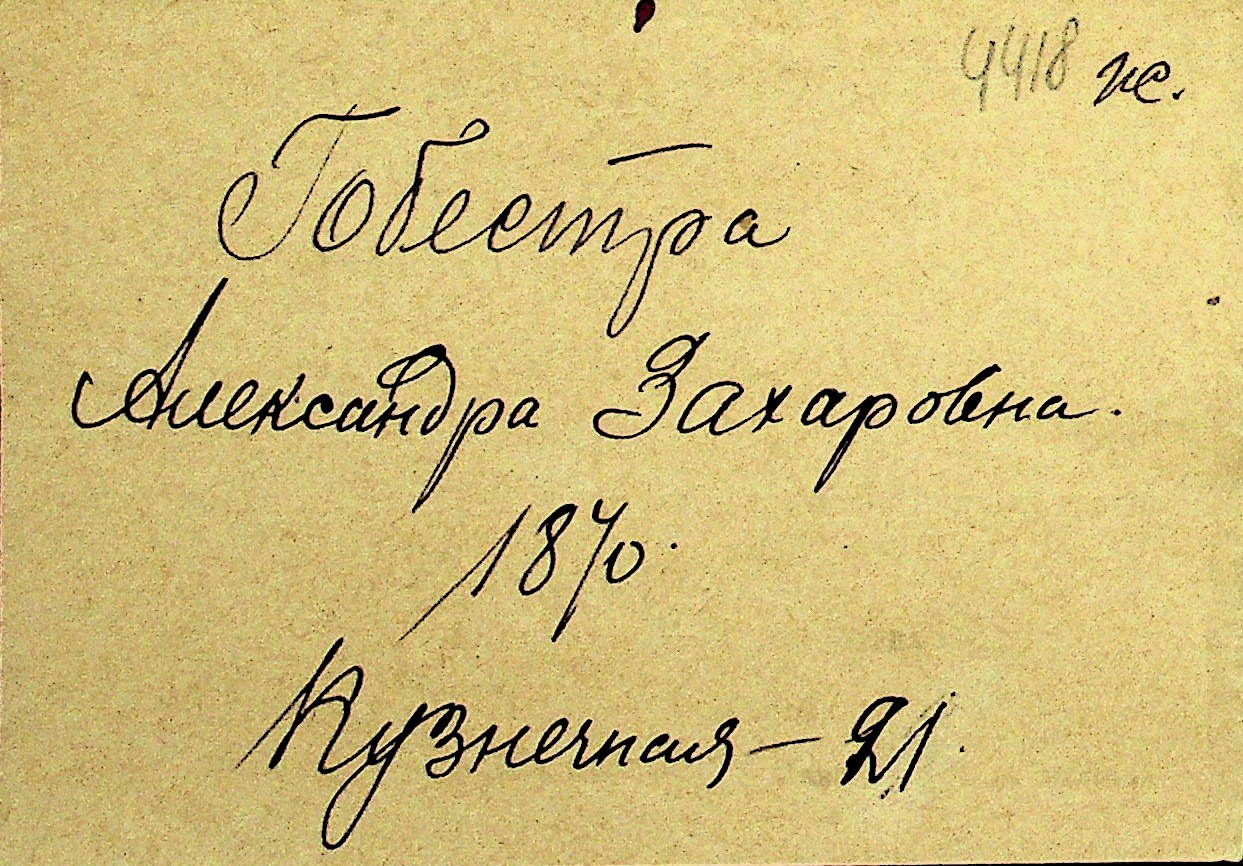 4418 ж.
Гобестра
Александра Захаровна.
1870.
Кузнечная – 21.